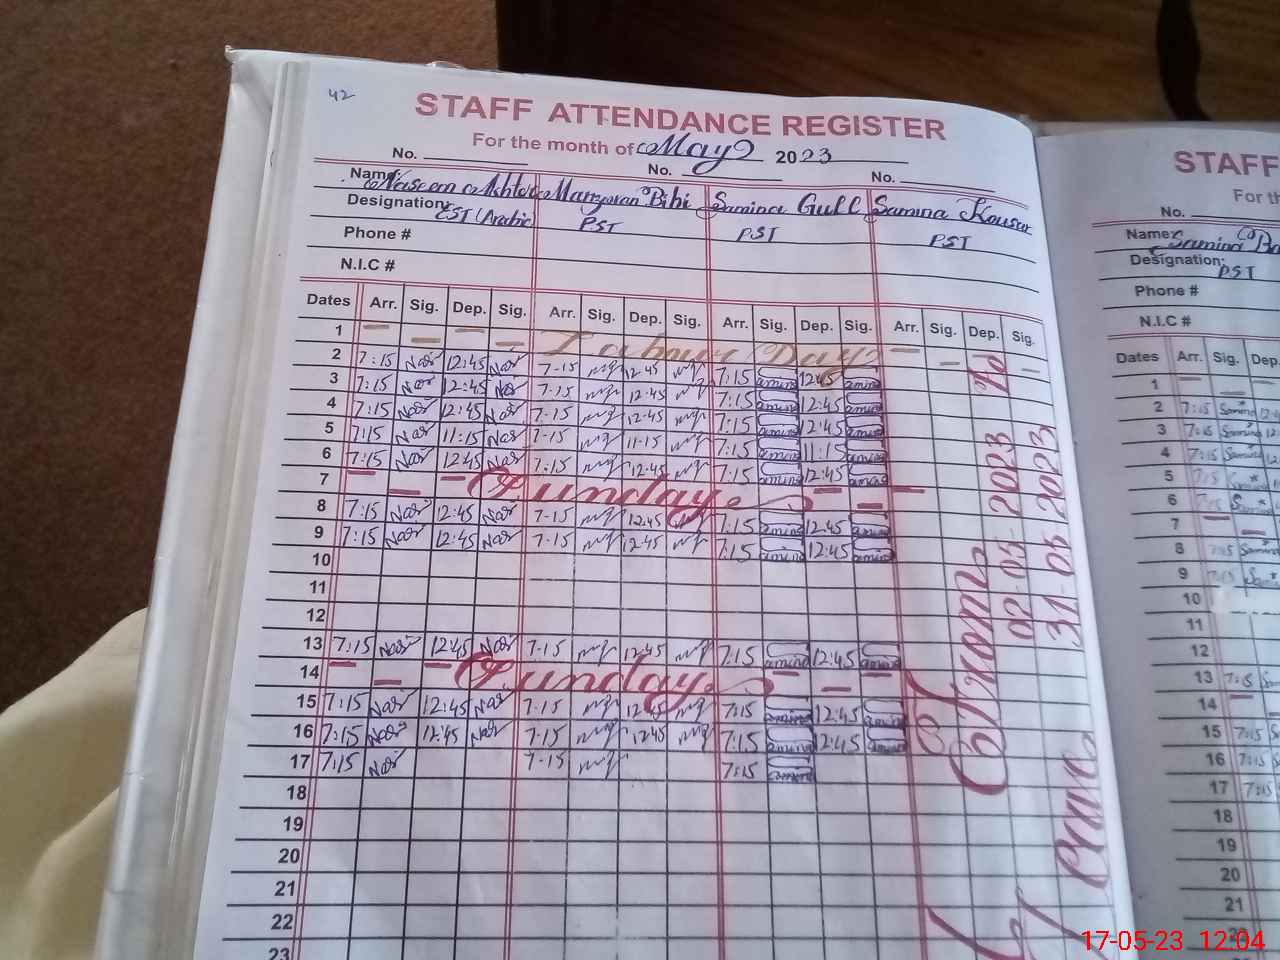 42
STAFF ATTENDANCE REGISTER
For the month of May 2023
No. No. No.
Name: Naseem Akhter Maryam Bibi Samina Gull Samina Kousar
Designation: EST (Arabic PST PST PST
Phone #
N.I.C #
Dates Arr. Sig. Dep. Sig. Arr. Sig. Dep. Sig. Arr. Sig. Dep. Sig. Arr. Sig. Dep. Sig.
1 Labour Day
2 7:15 Nas 12:45 Nas 7-15 12:45 7:15 amina 12:45 amina
3 7:15 Nas 12:45 Nas 7-15 12:45 7:15 amina 12:45 amina
4 7:15 Nas 12:45 Nas 7-15 12:45 7:15 amina 12:45 amina
5 7:15 Nas 11:15 Nas 7-15 11-15 7:15 amina 11:15 amina
6 7:15 Nas 12:45 Nas 7:15 12:45 7:15 amina 12:45 amina
7 Sunday
8 7:15 Nas 12:45 Nas 7-15 12:45 7:15 amina 12:45 amina
9 7:15 Nas 12:45 Nas 7-15 12:45 7:15 amina 12:45 amina
10
11
12
13 7:15 Nas 12:45 Nas 7-15 12:45 7:15 amina 12:45 amina
14 Sunday
15 7:15 Nas 12:45 Nas 7-15 12:45 7:15 amina 12:45 amina
16 7:15 Nas 12:45 Nas 7-15 12:45 7:15 amina 12:45 amina
17 7:15 Nas 7-15 7:15 amina
18
19
20
21
22
23
From 02-05-2023 to
31-05-2023
Leave
STAFF
For th
No.
Name: Samina
Designation: PST
Phone #
N.I.C #
Dates Arr. Sig. Dep
1
2 7:15 Samina
3 7:15 Samina 12
4 7:15 Samina
5 7:15
6 7:15
7
8 7:15 Samina
9 7:15
10
11
12
13 7:15
14
15 7:15
16 7:15
17 7:15
18
19
20
21
22
17-05-23 12:04